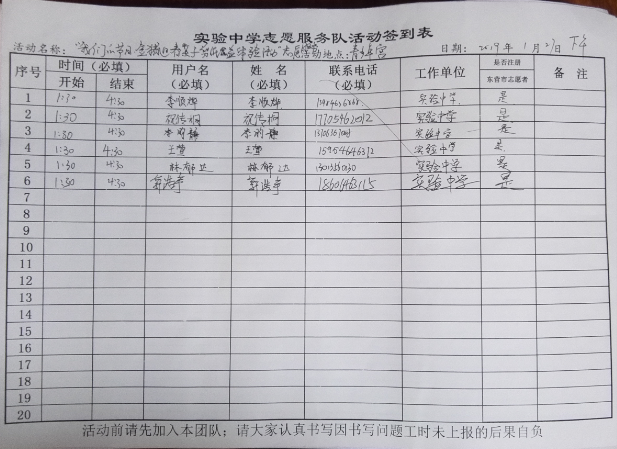 实验中学志愿服务队活动签到表
活动名称：“我们的节日 志愿活动地点：青少年宫 日期：2019年1月27日 下午
序号 时间（必填） 用户名（必填） 姓名（必填） 联系电话（必填） 工作单位 是否注册东营市志愿者 备注
开始 结束
1 1:30 4:30 实验中学 是
2 1:30 4:30 祝传桐 祝传桐 17705462012 实验中学 是
3 1:30 4:30 实验中学 是
4 1:30 4:30 王莹 王莹 15954646312 实验中学 是
5 1:30 4:30 林郁 林郁 实验中学 是
6 1:30 4:30 郭浩宇 郭浩宇 实验中学 是
7
8
9
10
11
12
13
14
15
16
17
18
19
20
活动前请先加入本团队；请大家认真书写因书写问题工时未上报的后果自负